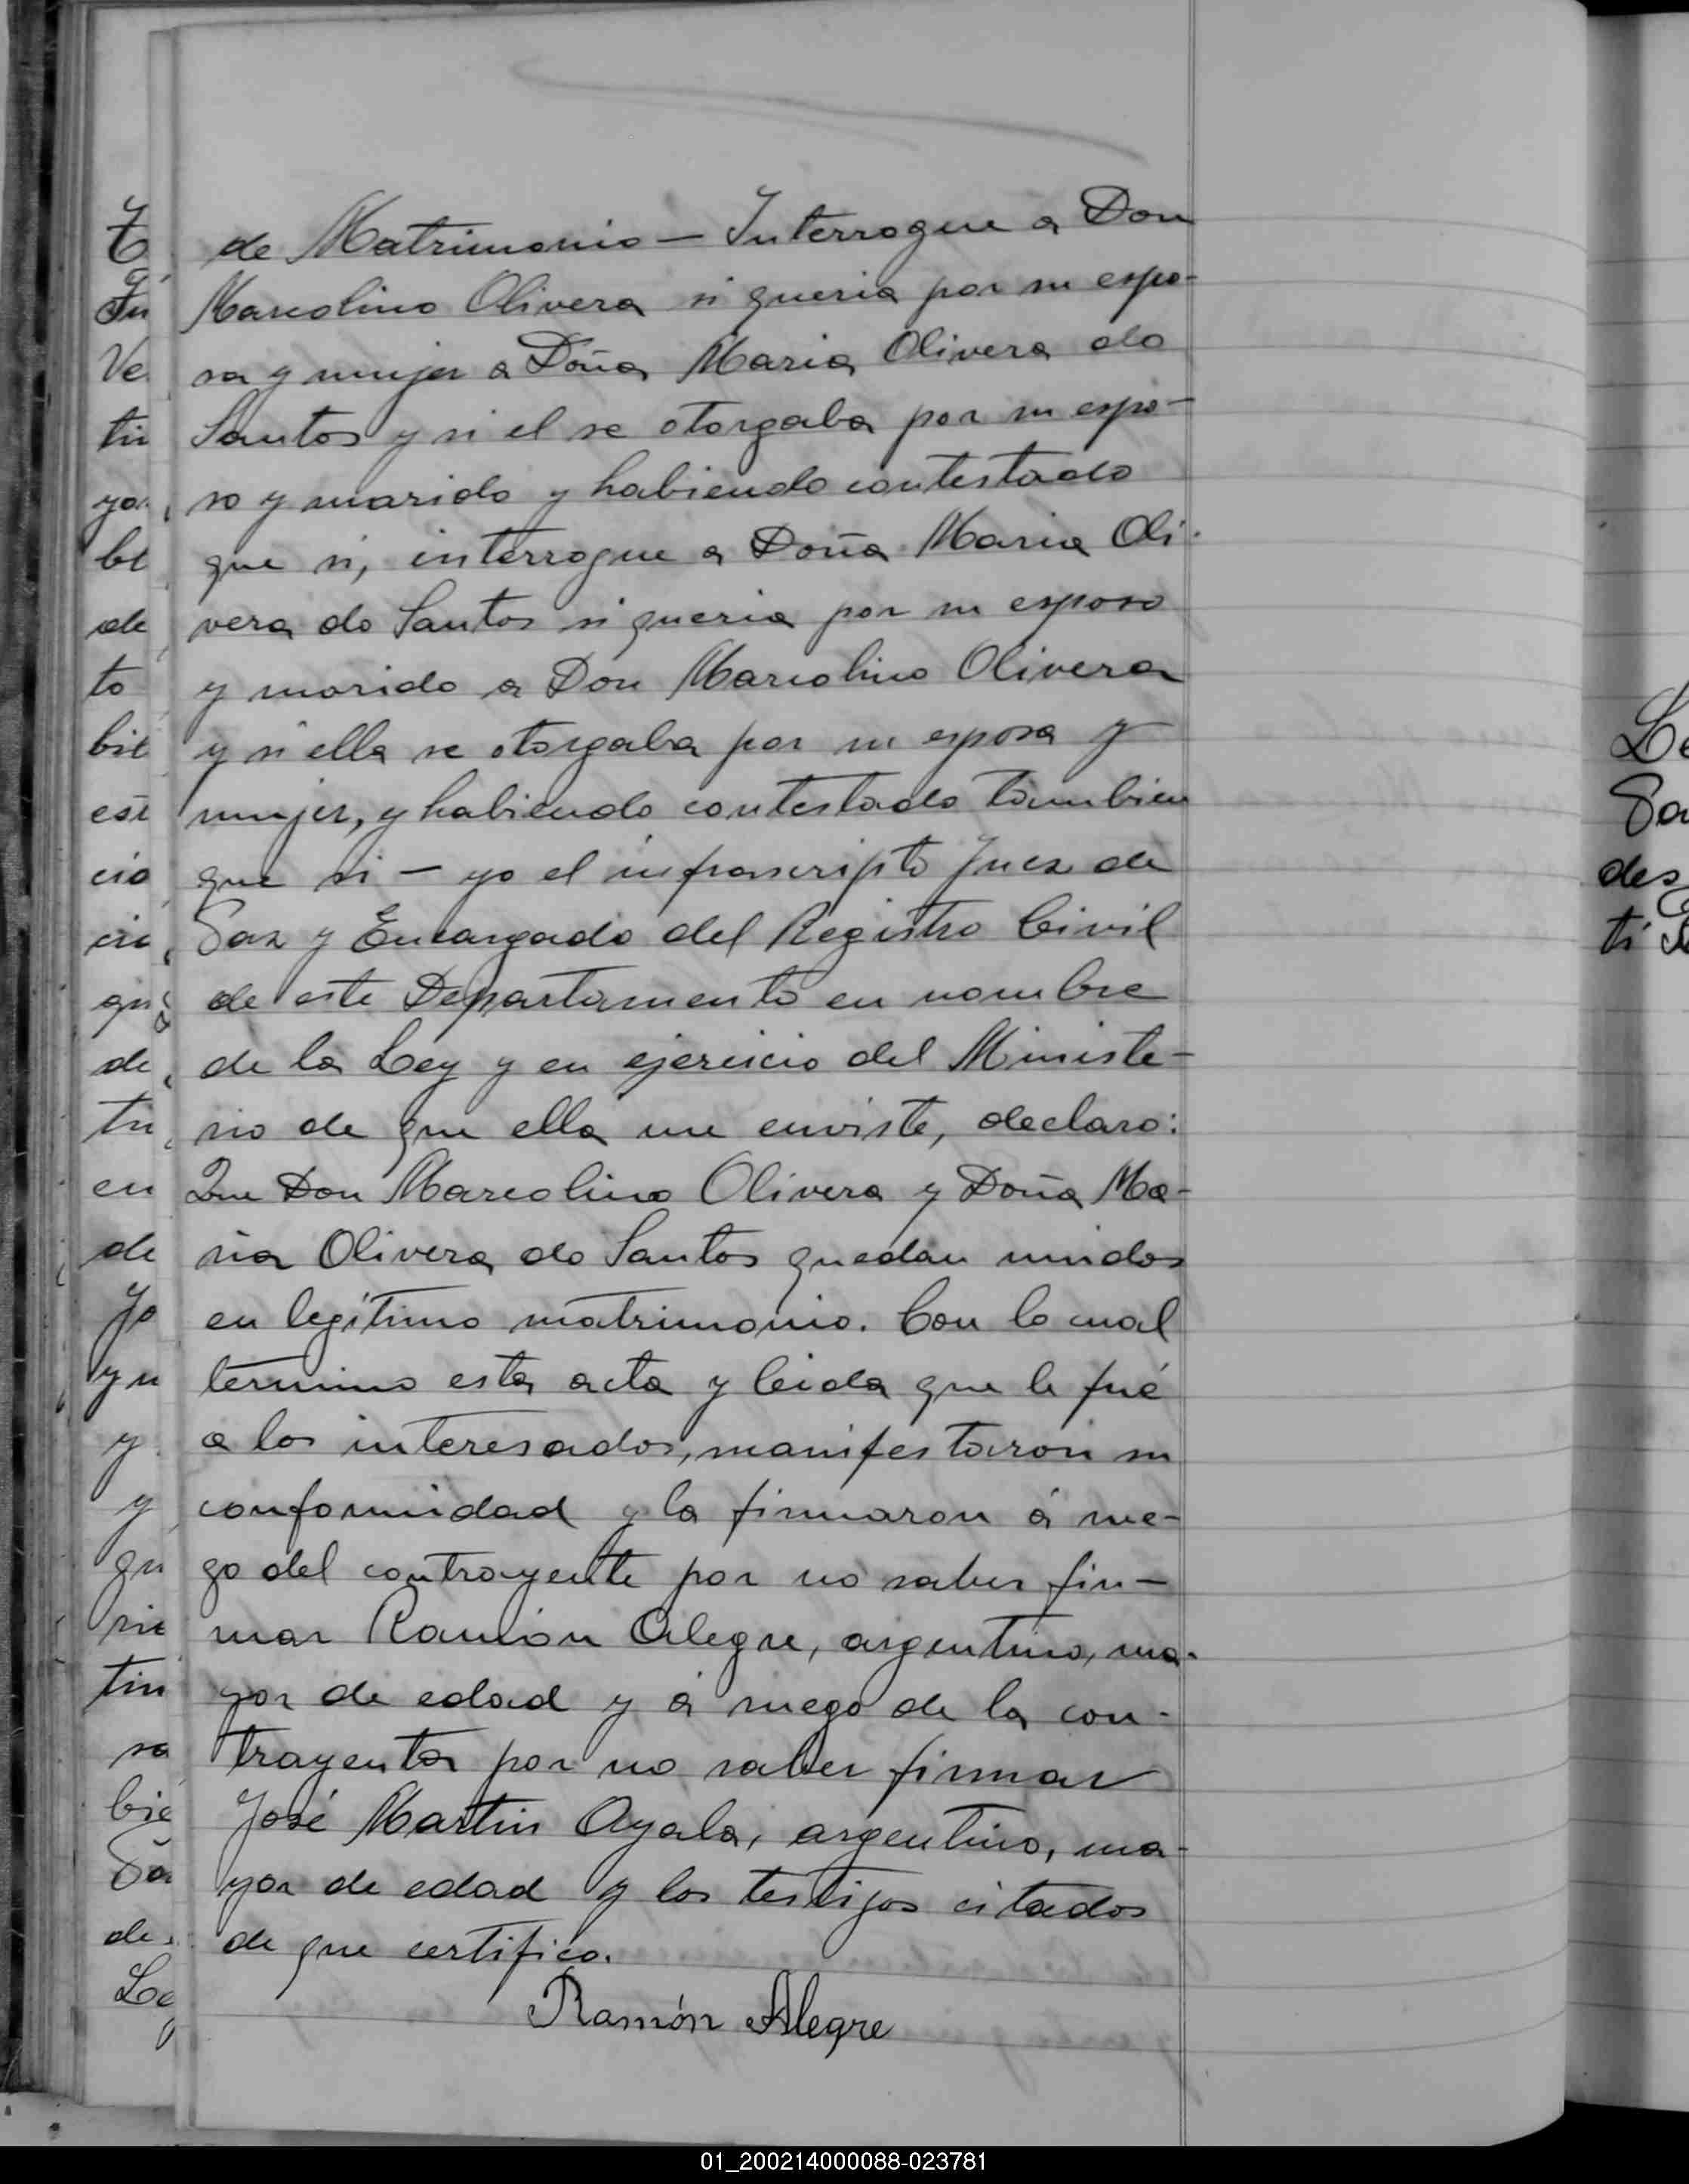 de Matrimonio — Interrogue a Don
Marcolino Olivera si queria por su espo-
sa y mujer a Doña Maria Olivera do
Santos y si el se otorgaba por su espo-
so y marido y habiendo contestado
que si, interrogue a Doña Maria Oli-
vera do Santos si queria por su esposo
y marido a Don Marcolino Olivera
y si ella se otorgaba por su esposa y
mujer, y habiendo contestado tambien
que si — yo el infrascripto Juez de
Paz y Encargado del Registro Civil
de este Departamento en nombre
de la Ley y en ejercicio del Ministe-
rio de que ella me enviste, declaro:
Que Don Marcolino Olivera y Doña Ma-
ria Olivera do Santos quedan unidos
en legítimo matrimonio. Con lo cual
termino esta acta y leida que le fué
a los interesados, manifestaron su
conformidad y la firmaron á rue-
go del contrayente por no saber fir-
mar Ramón Alegre, argentino, ma-
yor de edad y á ruego de la con-
trayenta por no saber firmar
José Martin Ayala, argentino, ma-
yor de edad y los testigos citados
de que certifico.
Ramón Alegre
01_200214000088-023781